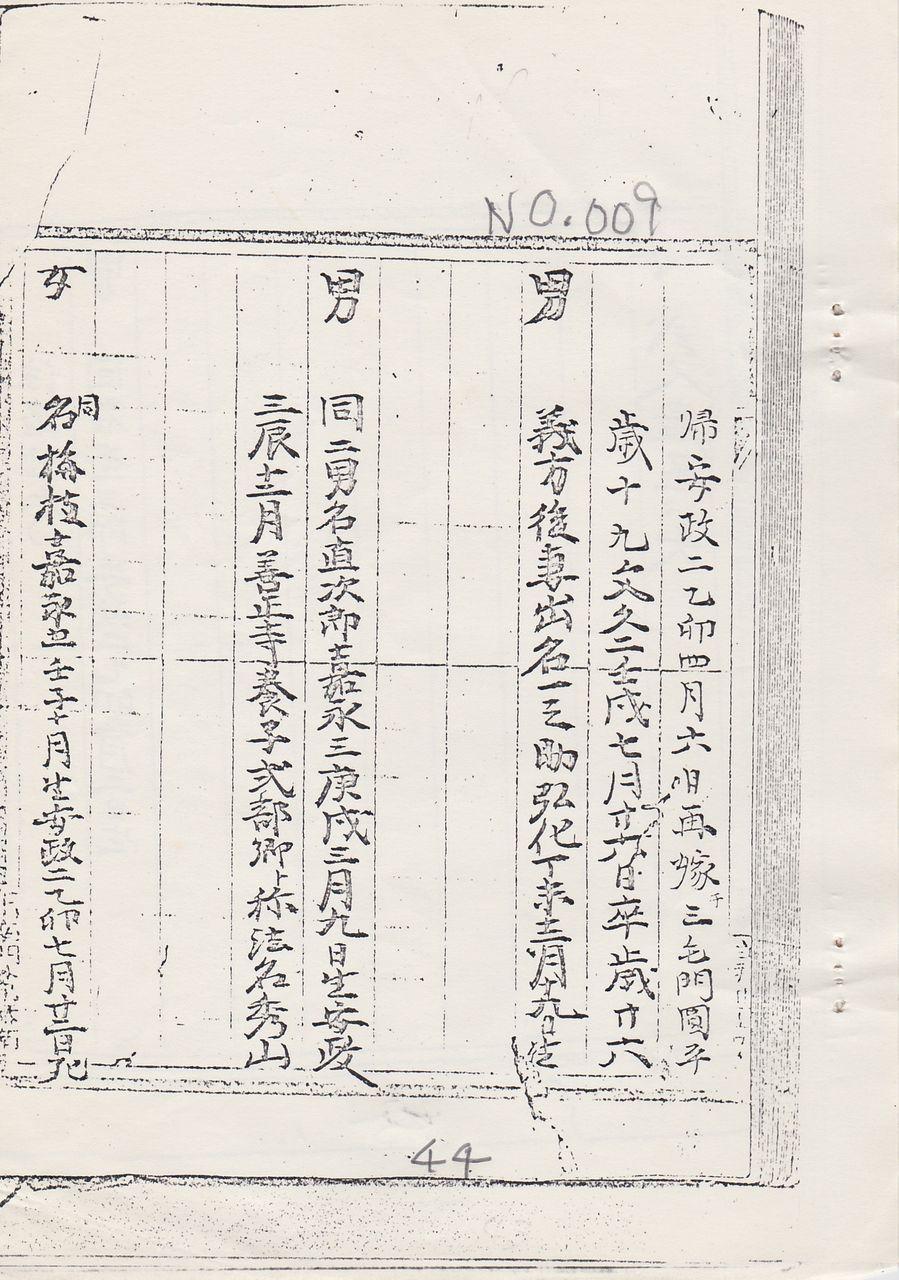 NO.009
帰安政二乙卯四月六日再嫁于三毛門圓平
歳十九文久二壬戌七月廿六日卒歳廿六
男 義方後妻出名一之助弘化丁未十二月十九日生
男 同二男名直次郎嘉永三庚戌三月九日生安政
三辰十二月善正寺養子式部卿ト称法名秀山
女 同名梅枝嘉永五壬子十月生安政二乙卯七月廿二日死
44